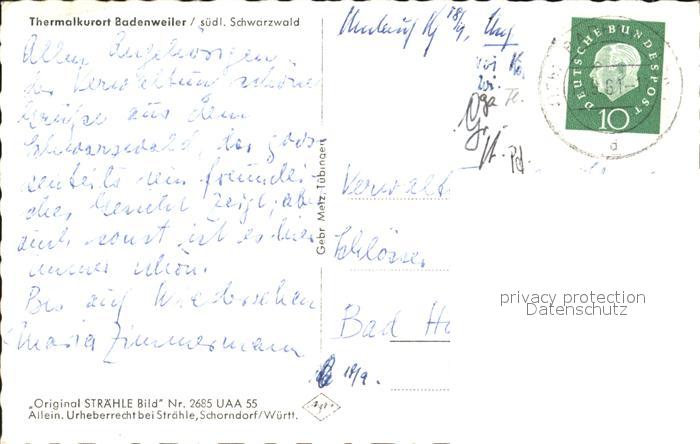 Thermalkurort Badenweiler / südl. Schwarzwald
Allen Angehörigen
der Verwaltung schöne
Grüße aus dem
Schwarzwald, der
ein freundli-
ches Gesicht zeigt, aber
auch sonst ist es hier
immer schön.
Bis auf Wiedersehen
Maria Zimmermann
„Original STRÄHLE Bild" Nr. 2685 UAA 55
Allein. Urheberrecht bei Strähle, Schorndorf/Württ.
Gebr. Metz, Tübingen
DEUTSCHE BUNDESPOST
10
Verwalt
Schlösser
Bad Ho
privacy protection
Datenschutz